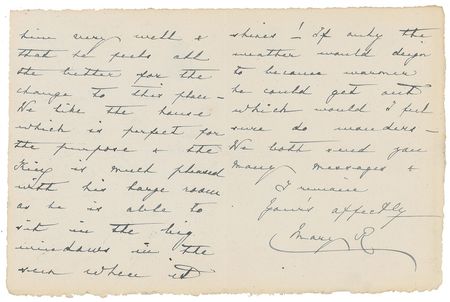 him very well &
that he feels all
the better for the
change to this place –
We like the house
which is perfect for
the purpose & the
King is much pleased
with his large room
as he is able to
sit in the big
windows in the
sun when it
shines! If only the
weather would deign
to because warmer
he could get out
which would I feel
sure do wonders –
We both send you
many messages &
I remain
Yours affectly
Mary R